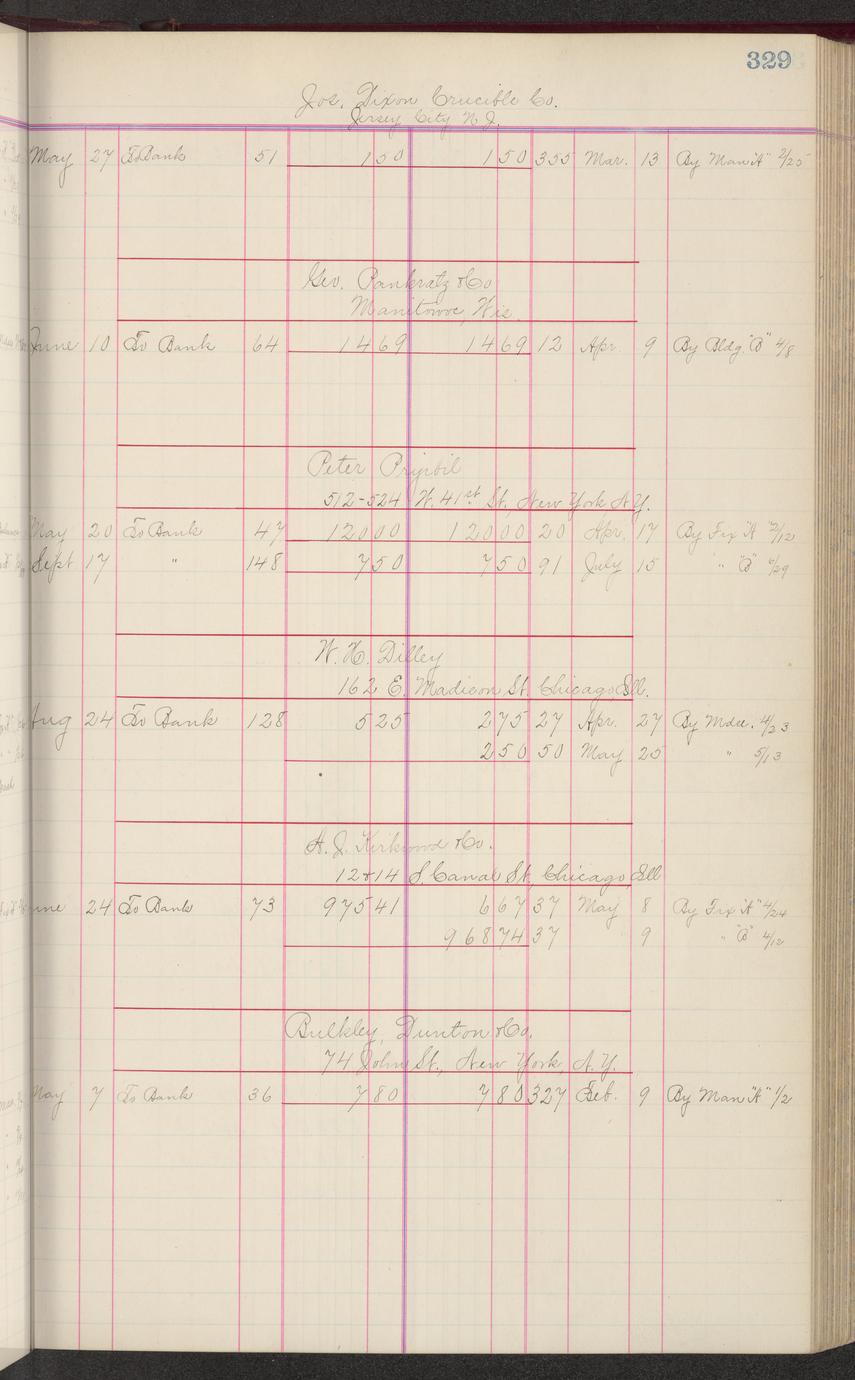 329
Jos. Dixon Crucible Co.
Jersey City N.J.
May 27 To Bank 51 150 150 355 Mar. 13 By Man "A" 2/25
Geo. Pankratz & Co
Manitowoc, Wis.
June 10 To Bank 64 1469 1469 12 Apr. 9 By Bldg. "B" 4/8
Peter Pryibil
512-524 W. 41st St., New York N.Y.
May 20 To Bank 47 12000 12000 20 Apr. 17 By Fix "A"
Sept 17 " 148 750 750 91 July 15 " "B" 6/29
W. H. Dilley
162 E. Madison St. Chicago, Ill.
Aug 24 To Bank 128 525 275 27 Apr. 27 By Mdse. 4/23
250 50 May 25 " 5/13
H. J. Kirkwood & Co.
12 & 14 S. Canal St., Chicago, Ill
June 24 To Bank 73 97541 667 37 May 8 By Fix "A" 4/24
96874 37 9 " "B" 4/12
Bulkley, Dunton & Co.
74 John St., New York, N.Y.
May 7 To Bank 36 780 780 327 Feb. 9 By Man "A" 1/2